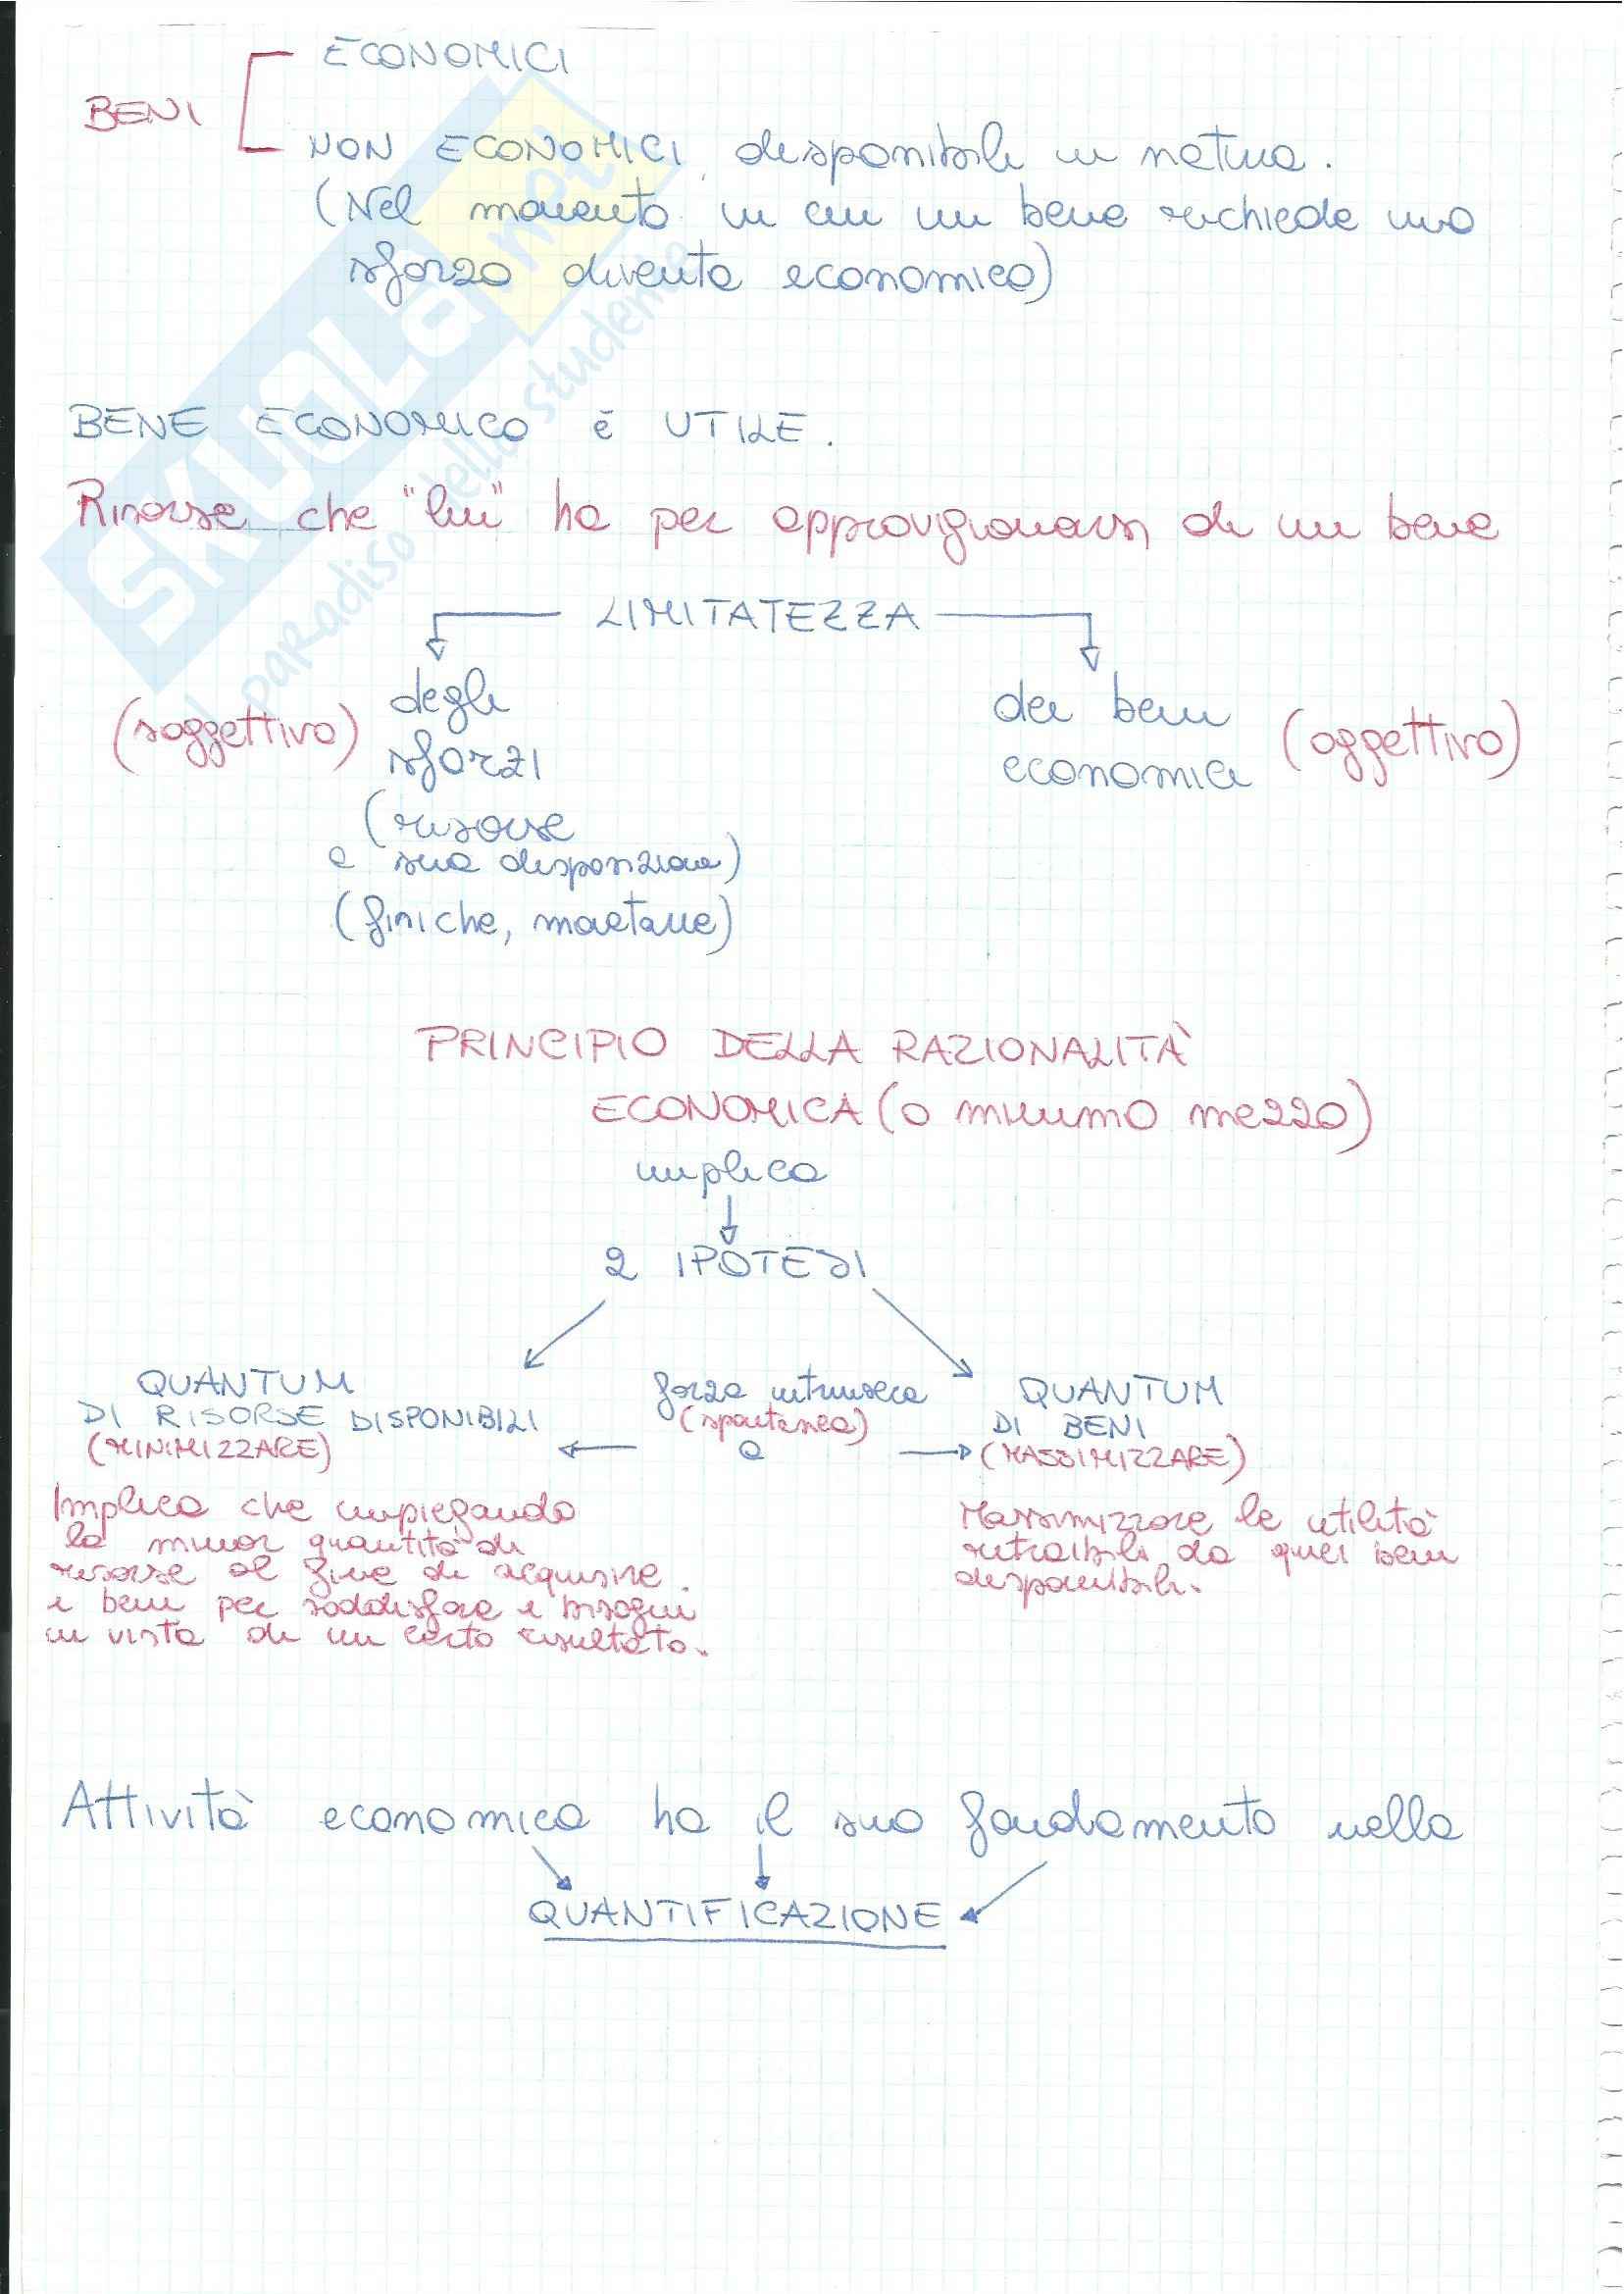 ECONOMICI
BENI
NON ECONOMICI, disponibili in natura.
(Nel momento in cui un bene richiede uno
sforzo diventa economico)
BENE ECONOMICO è UTILE.
Risorse che "lui" ha per approvigionarsi di un bene
LIMITATEZZA
(soggettivo) degli
sforzi
(risorse
a sua disposizione)
(fisiche, monetarie)
dei beni
economici (oggettivo)
PRINCIPIO DELLA RAZIONALITÀ
ECONOMICA (o minimo mezzo)
implica
2 IPOTESI
QUANTUM
DI RISORSE DISPONIBILI
(MINIMIZZARE)
forza intrinseca
(spontanea)
a
QUANTUM
DI BENI
(MASSIMIZZARE)
Implica che impiegando
la minor quantità di
risorse al fine di acquisire
i beni per soddisfare i bisogni
in vista di un certo risultato.
Massimizzare le utilità
ritraibili da quei beni
disponibili.
Attività economica ha il suo fondamento nella
QUANTIFICAZIONE
SKUOLA.net
il paradiso dello studente